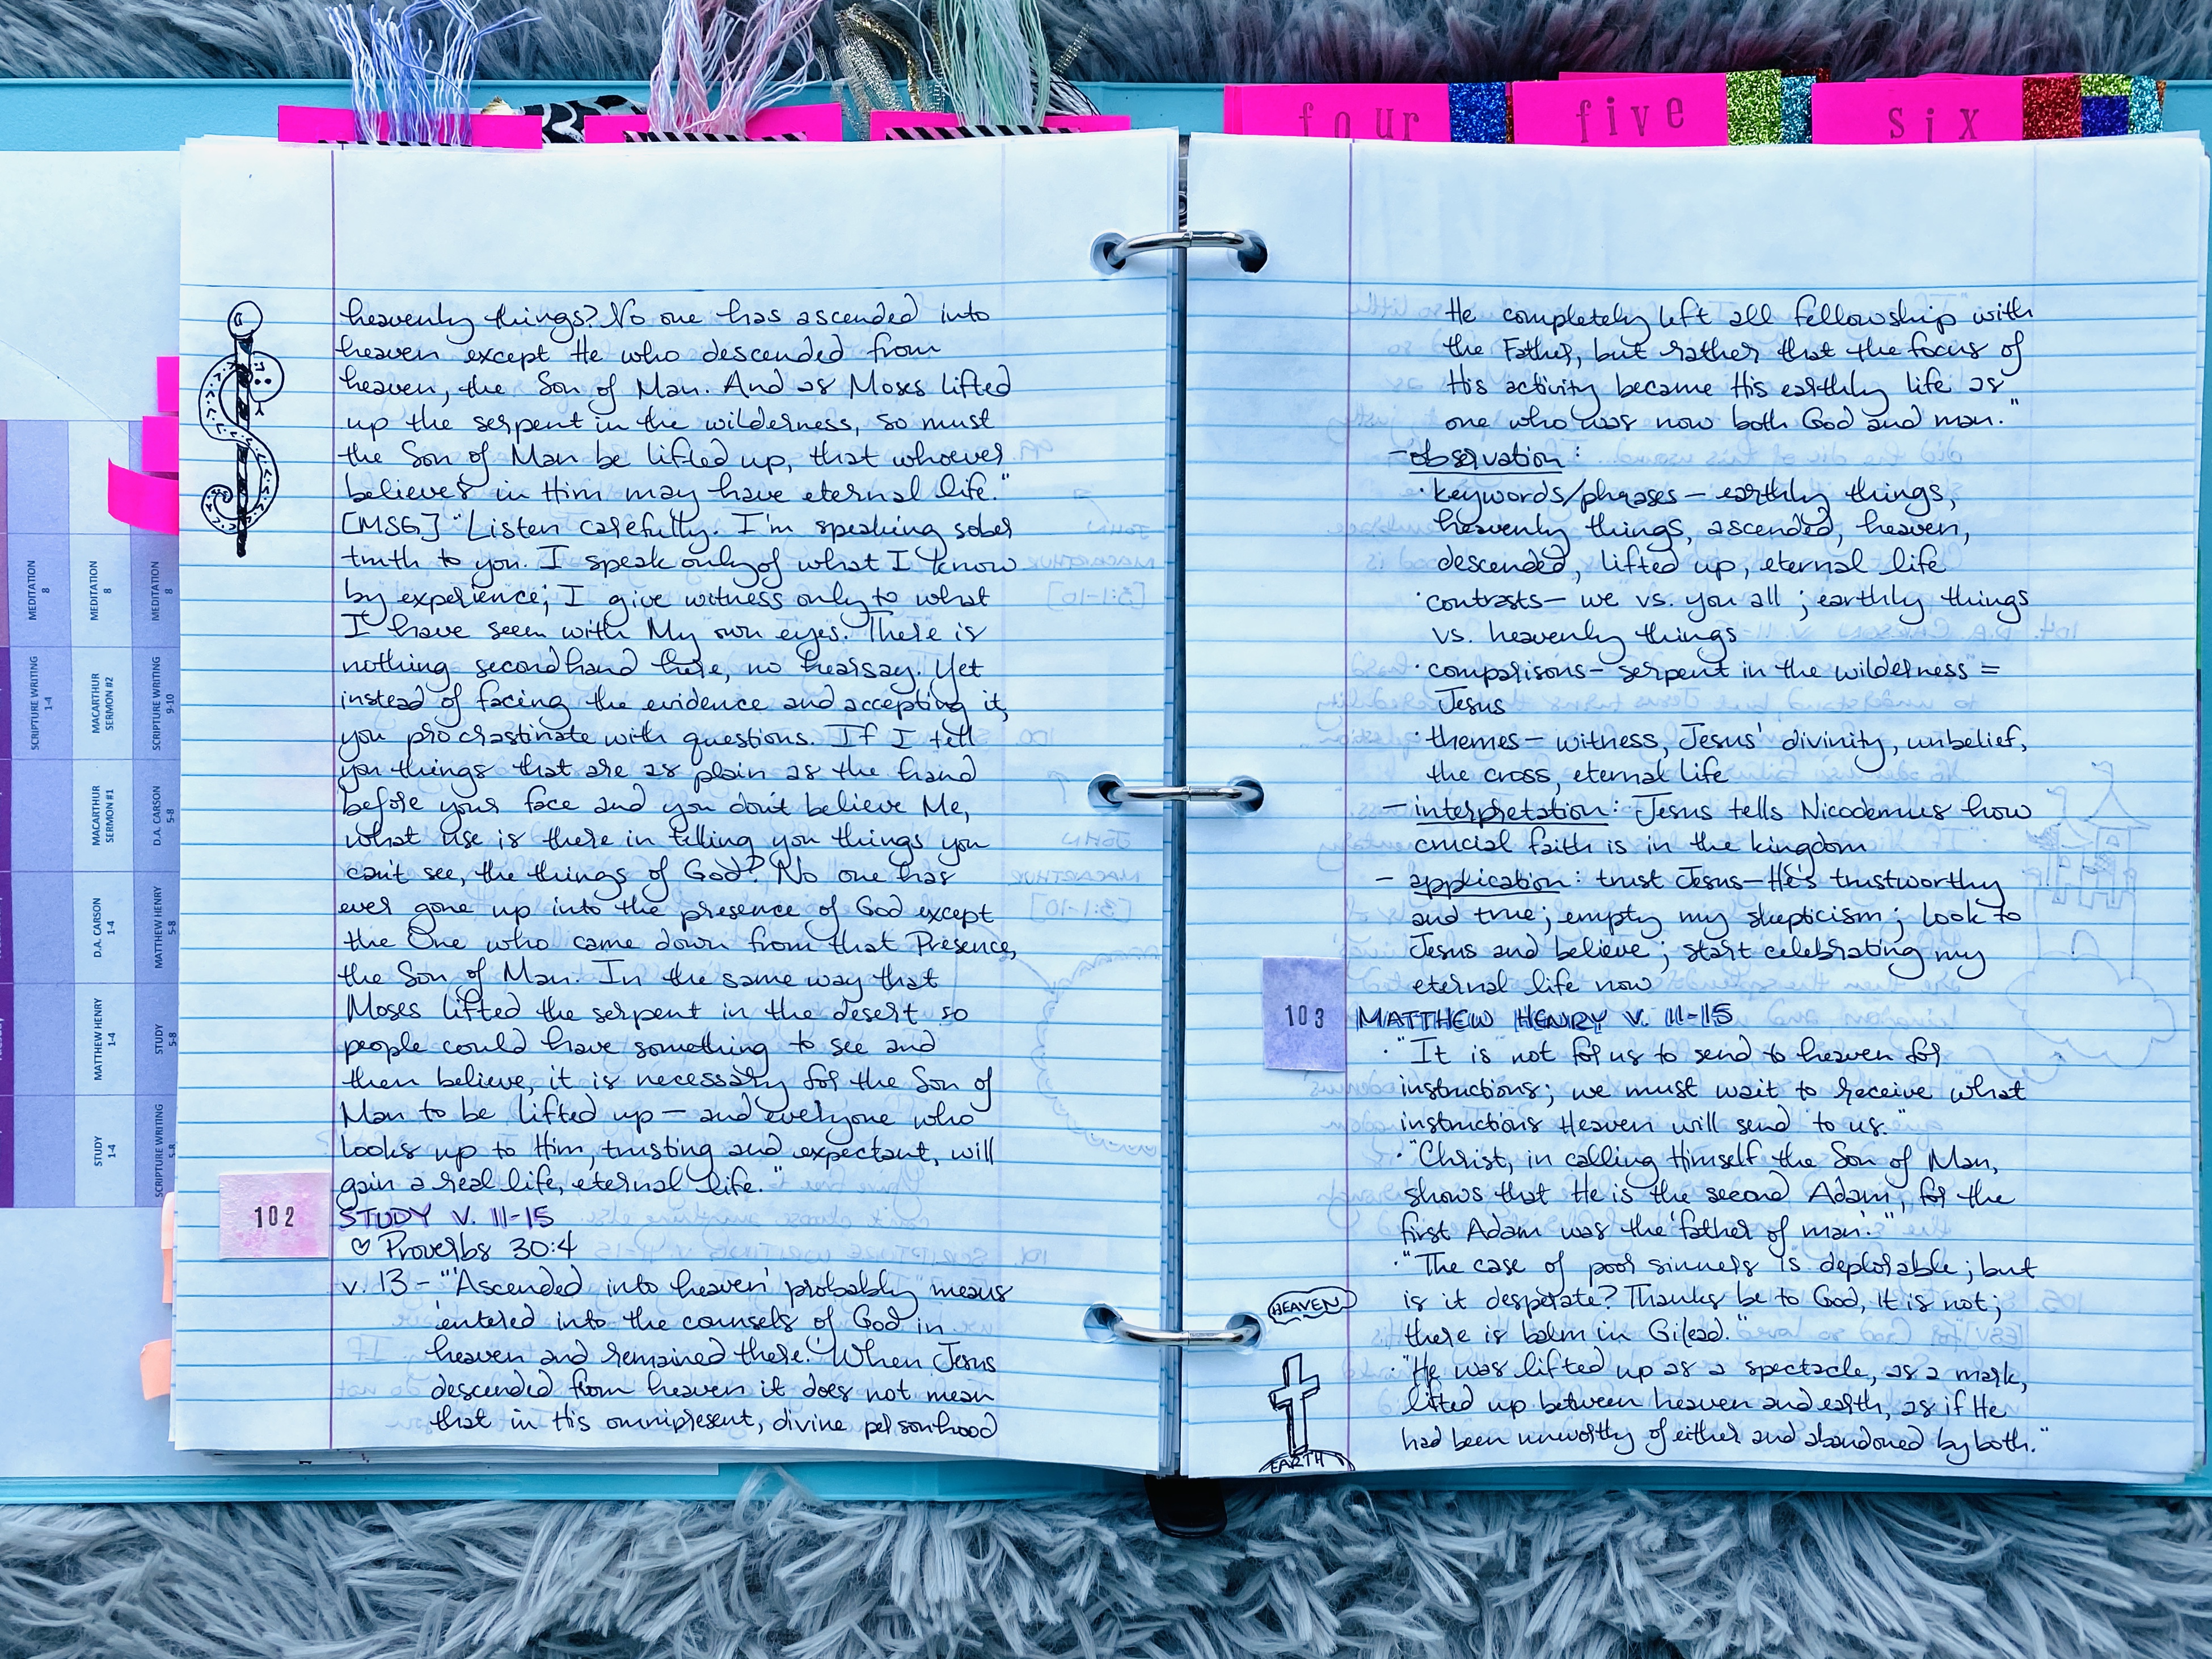 four
five
six
MEDITATION
8
MEDITATION
8
MEDITATION
8
SCRIPTURE WRITING
1-4
MACARTHUR
SERMON #2
SCRIPTURE WRITING
9-10
MACARTHUR
SERMON #1
D.A. CARSON
5-8
D.A. CARSON
1-4
MATTHEW HENRY
5-8
MATTHEW HENRY
1-4
STUDY
5-8
STUDY
1-4
SCRIPTURE WRITING
5-8
heavenly things? No one has ascended into
heaven except He who descended from
heaven, the Son of Man. And as Moses lifted
up the serpent in the wilderness, so must
the Son of Man be lifted up, that whoever
believes in Him may have eternal life."
[MSG] "Listen carefully. I'm speaking sober
truth to you. I speak only of what I know
by experience; I give witness only to what
I have seen with My own eyes. There is
nothing secondhand here, no hearsay. Yet
instead of facing the evidence and accepting it,
you procrastinate with questions. If I tell
you things that are as plain as the hand
before your face and you don't believe Me,
what use is there in telling you things you
can't see, the things of God? No one has
ever gone up into the presence of God except
the One who came down from that Presence,
the Son of Man. In the same way that
Moses lifted the serpent in the desert so
people could have something to see and
then believe, it is necessary for the Son of
Man to be lifted up — and everyone who
looks up to Him, trusting and expectant, will
gain a real life, eternal life."
102 STUDY V. 11-15
♡ Proverbs 30:4
v. 13 - "'Ascended into heaven' probably means
'entered into the counsels of God in
heaven and remained there.' When Jesus
descended from heaven it does not mean
that in His omnipresent, divine personhood
He completely left all fellowship with
the Father, but rather that the focus of
His activity became His earthly life as
one who was now both God and man."
- observation:
· keywords/phrases — earthly things,
heavenly things, ascended, heaven,
descended, lifted up, eternal life
· contrasts — we vs. you all; earthly things
vs. heavenly things
· comparisons — serpent in the wilderness =
Jesus
· themes — witness, Jesus' divinity, unbelief,
the cross, eternal life
- interpretation: Jesus tells Nicodemus how
crucial faith is in the kingdom
- application: trust Jesus — He's trustworthy
and true; empty my skepticism; look to
Jesus and believe; start celebrating my
eternal life now
103 MATTHEW HENRY V. 11-15
· "It is not for us to send to heaven for
instructions; we must wait to receive what
instructions Heaven will send to us."
· "Christ, in calling Himself the Son of Man,
shows that He is the second Adam, for the
first Adam was the 'father of man'."
· "The case of poor sinners is deplorable; but
is it desperate? Thanks be to God, it is not;
there is balm in Gilead."
· "He was lifted up as a spectacle, as a mark,
lifted up between heaven and earth, as if He
had been unworthy of either and abandoned by both."
HEAVEN
EARTH